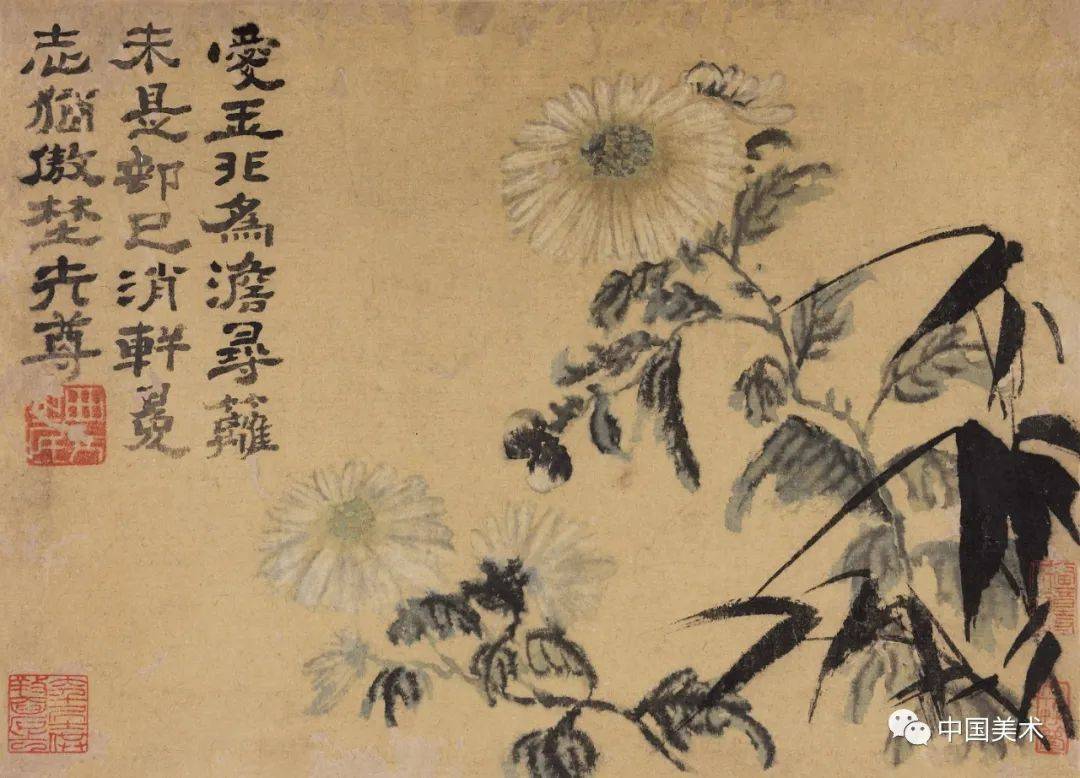 愛玉非為澹尋蘺
未是邨已消軒冕
志猶傲埜尊
中国美术